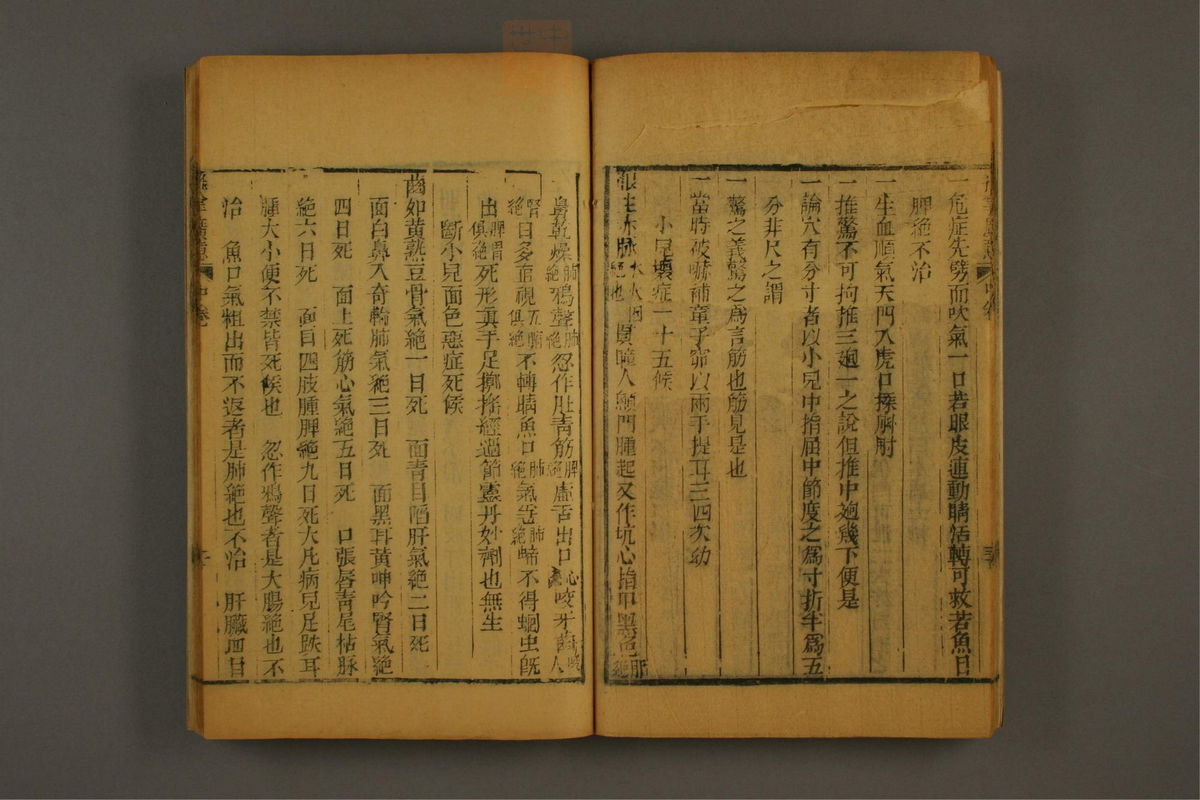 一危症先劈面吹氣一口若眼皮連動睛活轉可救若魚口
脾絕不治
一生血順氣天門入虎口揉胻肘
一推驚不可拘推三廻一之說但推中廻幾下便是
一論穴有分寸者以小兒中指屈中節度之爲寸折半爲五
分非尺之謂
一驚之義驚之爲言筋也筋見是也
一當時被嚇補童子 以兩手提耳三四次妙
小兒壞症一十五候
眼生赤脉 貫瞳人顖門腫起又作坑心指甲黑色
鼻乾燥肺絕鴉聲肺絕忽作肚青筋脾絕虛舌出口心絕咬牙齒人
腎絕日多直視五臟俱絕不轉睛魚口肺絕氣急肺絕啼不得蛔虫既
出脾胃俱絕死形真手足擲搖經過節靈丹妙劑也無生
斷小兒面色惡症死候
齒如黃熟豆骨氣絕一日死 面青目陷肝氣絕二日死
面白鼻入奇輪肺氣絕三日死 面黑耳黃呻吟腎氣絕
四日死 面上死筋心氣絕五日死 口張唇青尾枯脉
絕六日死 面目四肢腫脾絕九日死大凡病兒足趺耳
腫大小便不禁皆死候也 忽作鴉聲者是大腸絕也不
治 魚口氣粗出而不返者是肺絕也不治 肝臟面目